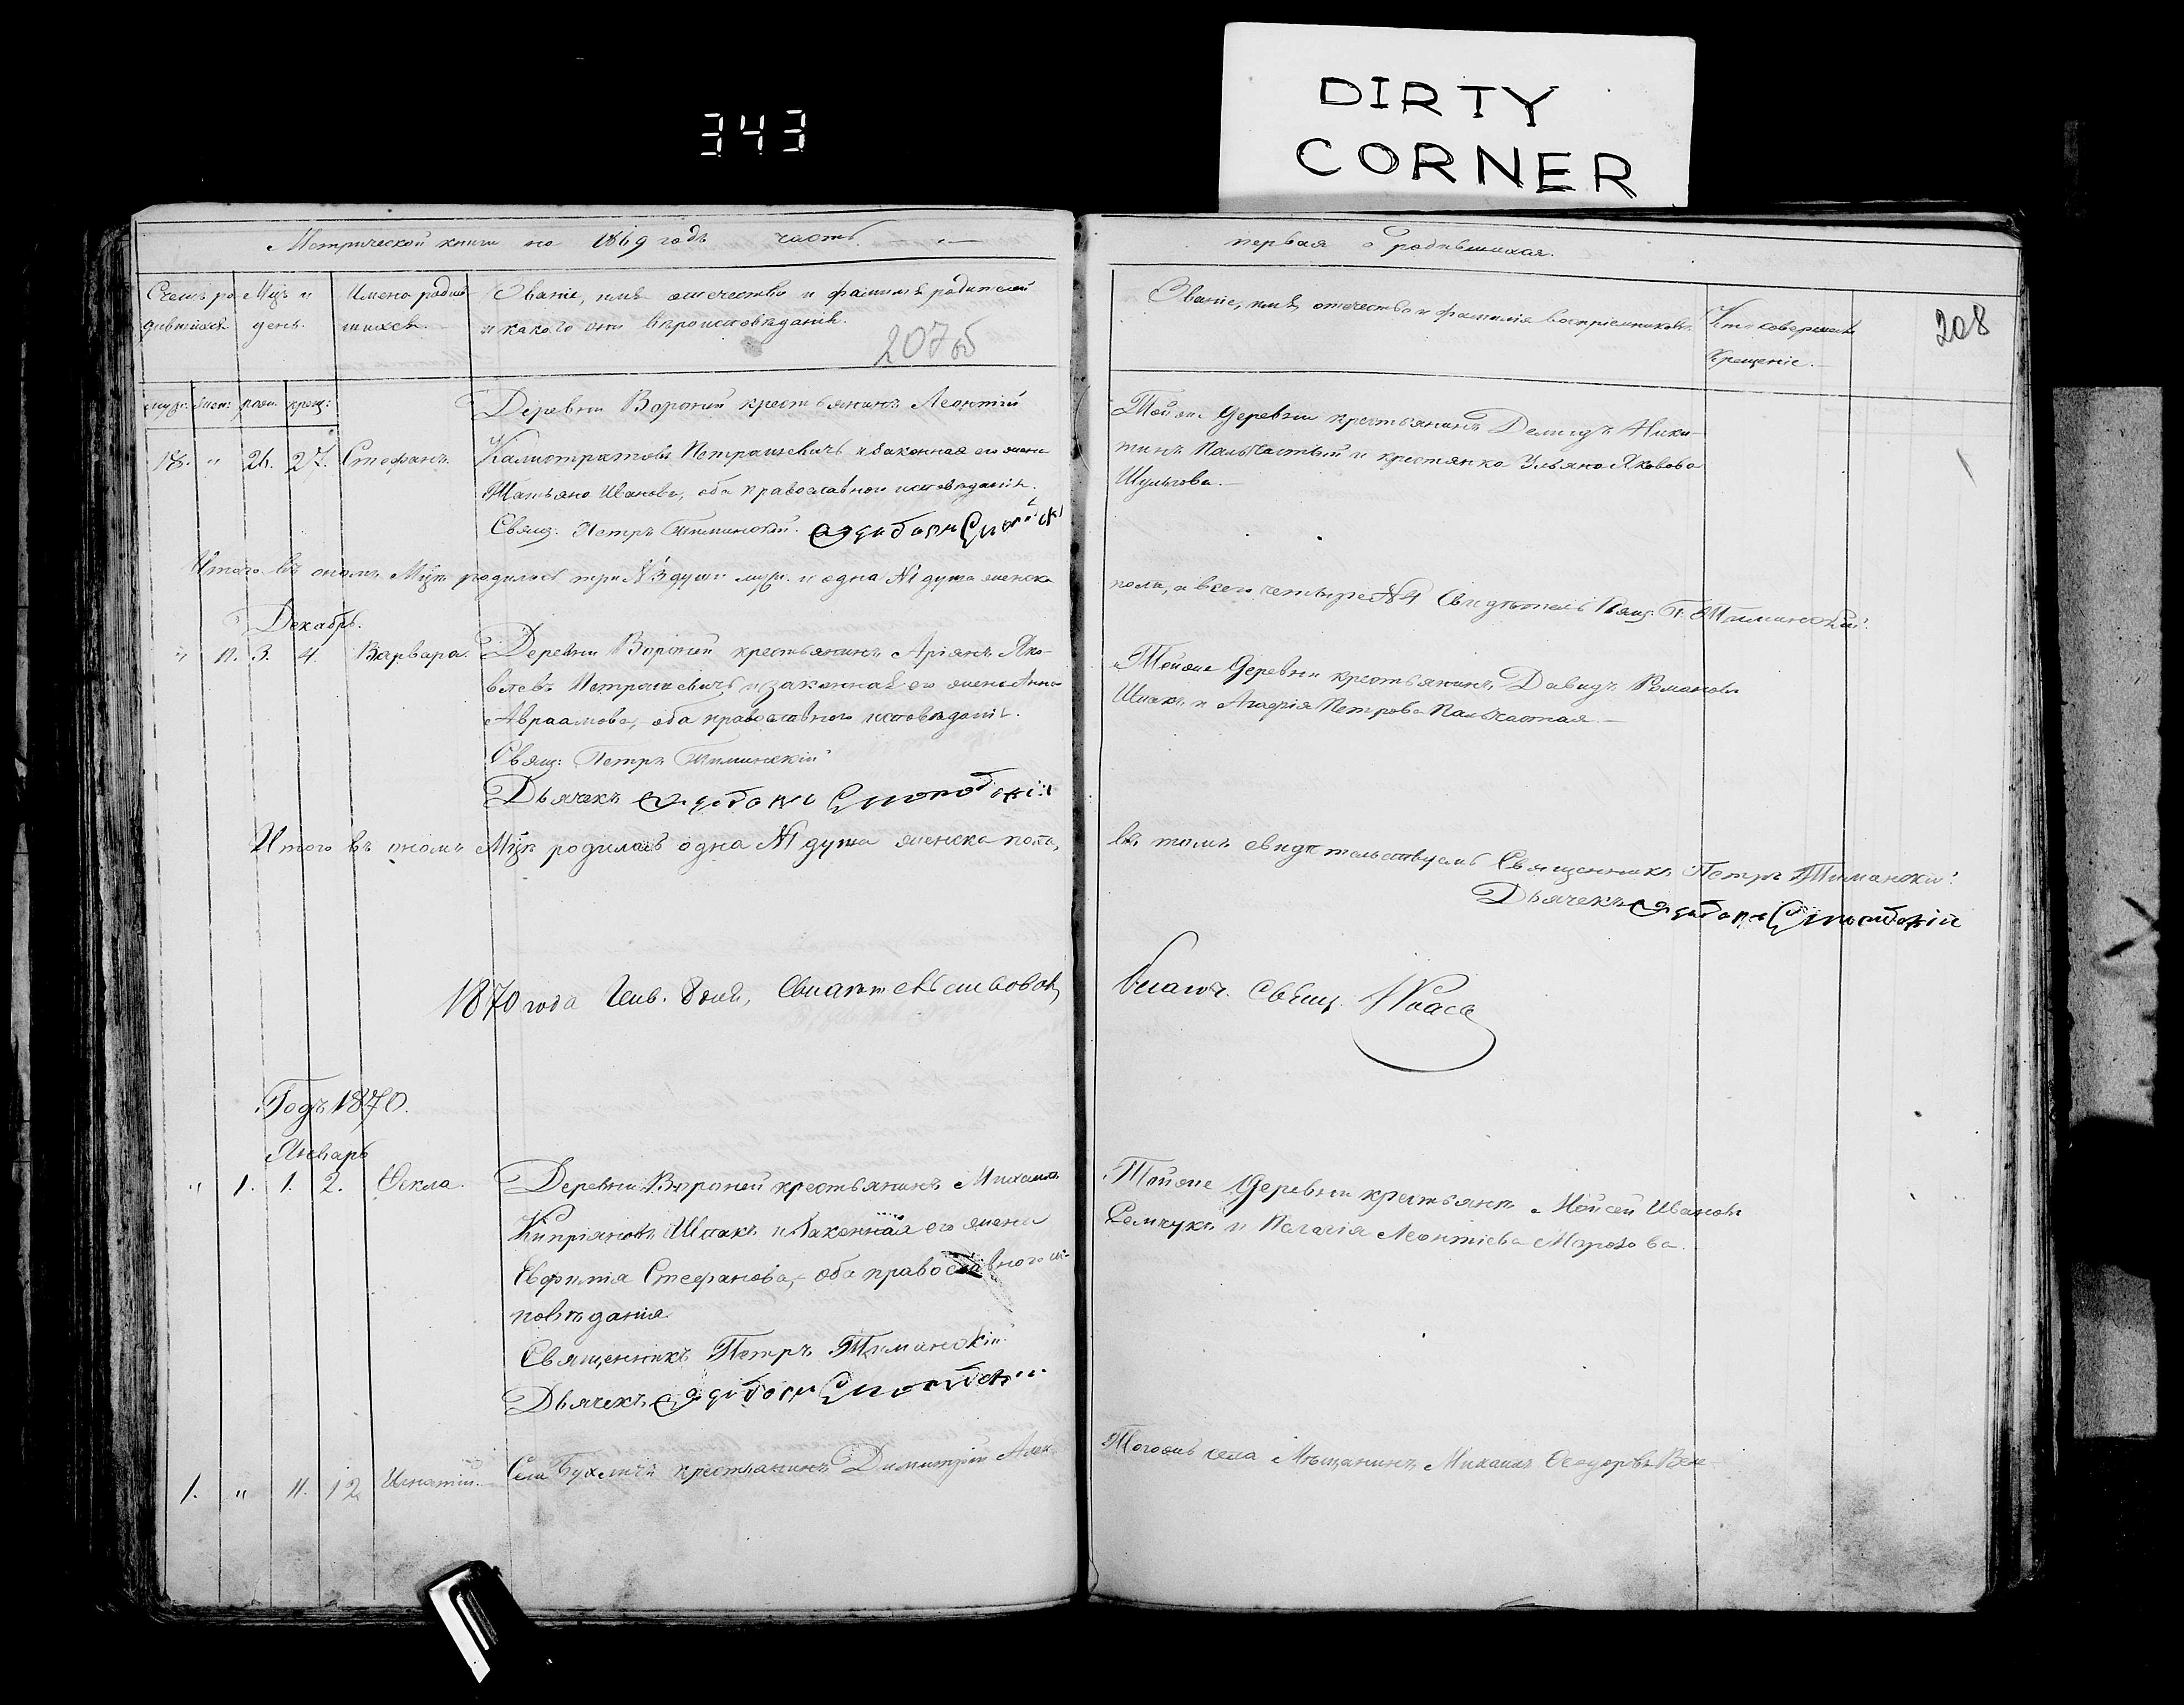 343
DIRTY
CORNER
Метрической книги на 1869 годъ часть
первая о родившихся.
208
Счетъ ро- Мцъ и Имена родив- Званіе, имя отечество и фамилія родителей
дившихся. день. шихся. и какого они вѣроисповѣданія.
207об
Званіе, имя, отечество и фамилія воспріемниковъ. Кто совершалъ
крещеніе.
муж: жен: рожд. крещ:
Деревни Вороний крестьянинъ Леонтій
18. " 26. 27. Стефанъ. Калистратовъ Петрашевичъ и законная его жена
Татьяна Иванова, оба православнаго исповѣданія.
Свящ. Петръ Тиминскій.
Той же деревни крестьянинъ Демидъ Ники-
тинъ Пальчастый и крестянка Ульяна Яковова
Шульгова.
Итого въ ономъ Мцѣ родилось три №3 души муж. и одна №1 душа женска
пола, а всего четыре №4 Свидѣтель Свящ. П. Тиминскій.
Декабрь.
" 11. 3. 4. Варвара. Деревни Вороний крестьянинъ Аріянъ Яко-
влевъ Петрашевичъ и законная его жена Анна
Авраамова, оба православнаго исповѣданія.
Свящ: Петръ Тиминскій
Дьячекъ
Той же деревни крестьянинъ Давидъ Романовъ
Шпакъ и Агафія Петрова Пальчастая
Итого въ ономъ Мцѣ родилась одна №1 душа женска пола,
въ томъ свидѣтельствуемъ Священникъ Петръ Тиманскій.
Дьячекъ
1870 года Генв. 8 дня, Свидѣтельствовалъ
Благоч. Свящ.
Годъ 1870.
Январь
" 1. 1. 2. Ѳекла. Деревни Вороний крестьянинъ Михаилъ
Кипріяновъ Шпакъ и законная его жена
Евфимія Стефанова, оба православнаго ис-
повѣданія
Священникъ Петръ Тиманскій
Дьячекъ
Той же деревни крестьянинъ Мойсей Ивановъ
Семчукъ и Пелагія Леонтіева Марозова.
1. " 11. 12 Игнатій. Села Бухличъ крестьянинъ Димитрій Алек-
Того жъ села Мѣщанинъ Михаилъ Ѳеодоровъ